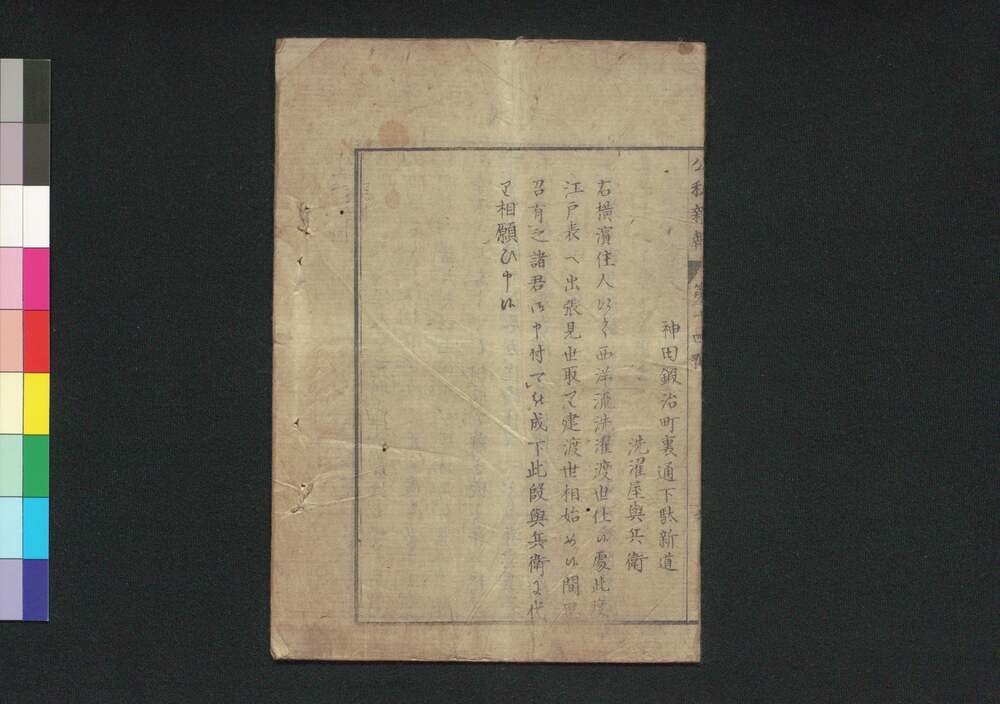 公私新報 第十四號
神田鍛治町裏通下駄新道
洗濯屋與兵衛
右横濱住人にて西洋流洗濯渡世仕候處此度
江戸表へ出張見世取建渡世相始め候間
召有之諸君御申付可被成下此段與兵衛に代
り相願ひ申候